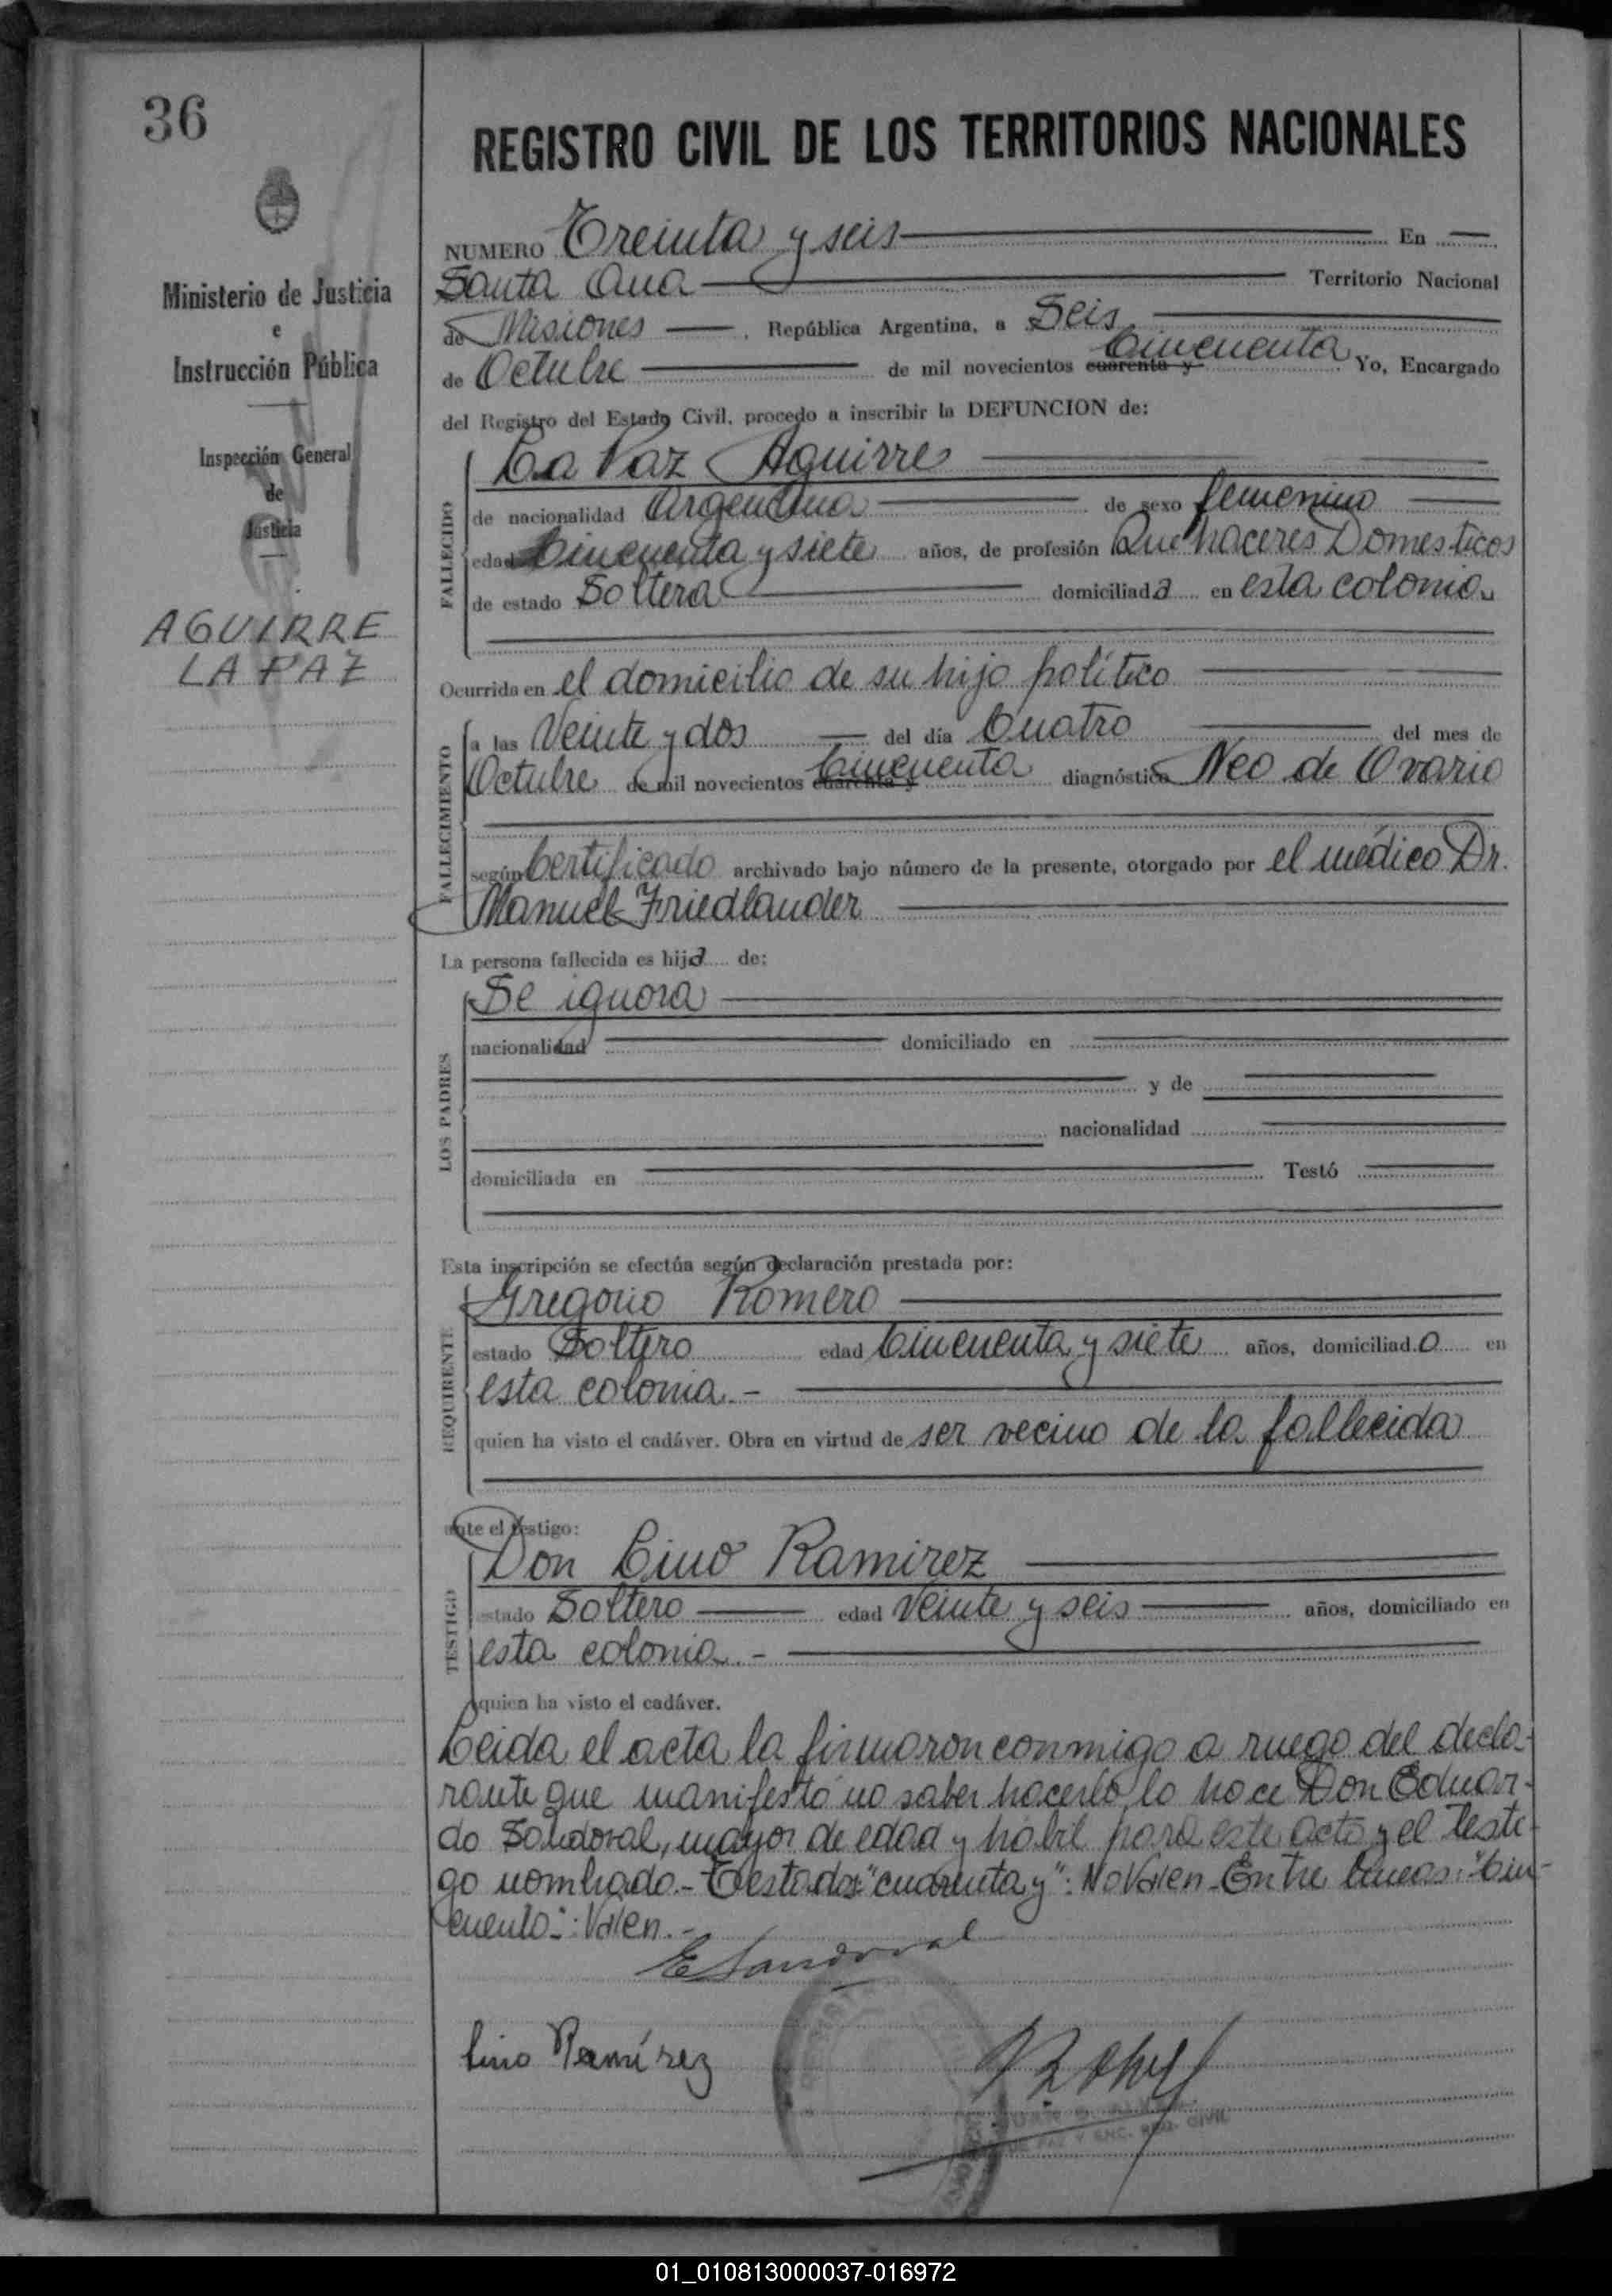 36
Ministerio de Justicia
e
Instrucción Pública
Inspección General
de
Justicia
AGUIRRE
LA PAZ
REGISTRO CIVIL DE LOS TERRITORIOS NACIONALES
NUMERO Treinta y seis En
Santa Ana Territorio Nacional
de Misiones, República Argentina, a Seis
de Octubre de mil novecientos cuarenta y Cincuenta Yo, Encargado
del Registro del Estado Civil, procedo a inscribir la DEFUNCION de:
FALLECIDO
La Paz Aguirre
de nacionalidad Argentina de sexo femenino
edad Cincuenta y siete años, de profesión Quehaceres Domesticos
de estado Soltera domiciliada en esta colonia
Ocurrida en el domicilio de su hijo político
FALLECIMIENTO
a las Veinte y dos del día Cuatro del mes de
Octubre de mil novecientos cuarenta y Cincuenta diagnóstico Neo de Ovario
según Certificado archivado bajo número de la presente, otorgado por el médico Dr.
Manuel Friedlander
La persona fallecida es hija de:
LOS PADRES
Se ignora
nacionalidad domiciliado en
y de
nacionalidad
domiciliada en Testó
Esta inscripción se efectúa según declaración prestada por:
REQUIRENTE
Gregorio Romero
estado Soltero edad Cincuenta y siete años, domiciliado en
esta colonia.-
quien ha visto el cadáver. Obra en virtud de ser vecino de la fallecida
ante el testigo:
TESTIGO
Don Lino Ramirez
estado Soltero edad Veinte y seis años, domiciliado en
esta colonia.-
quien ha visto el cadáver.
Leida el acta la firmaron conmigo a ruego del decla-
rante que manifestó no saber hacerlo, lo hace Don Eduar-
do Sandoval, mayor de edad y hábil para este acto y el testi-
go nombrado.- Testados: "cuarenta y": No Valen. Entre lineas: "Cin-
cuenta": Valen.-
E Sandoval
Lino Ramírez
ENC. REG. CIVIL
01_010813000037-016972